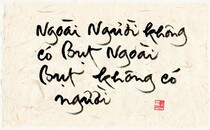 Ngoài Người không
có Bụt Ngoài
Bụt không có
người